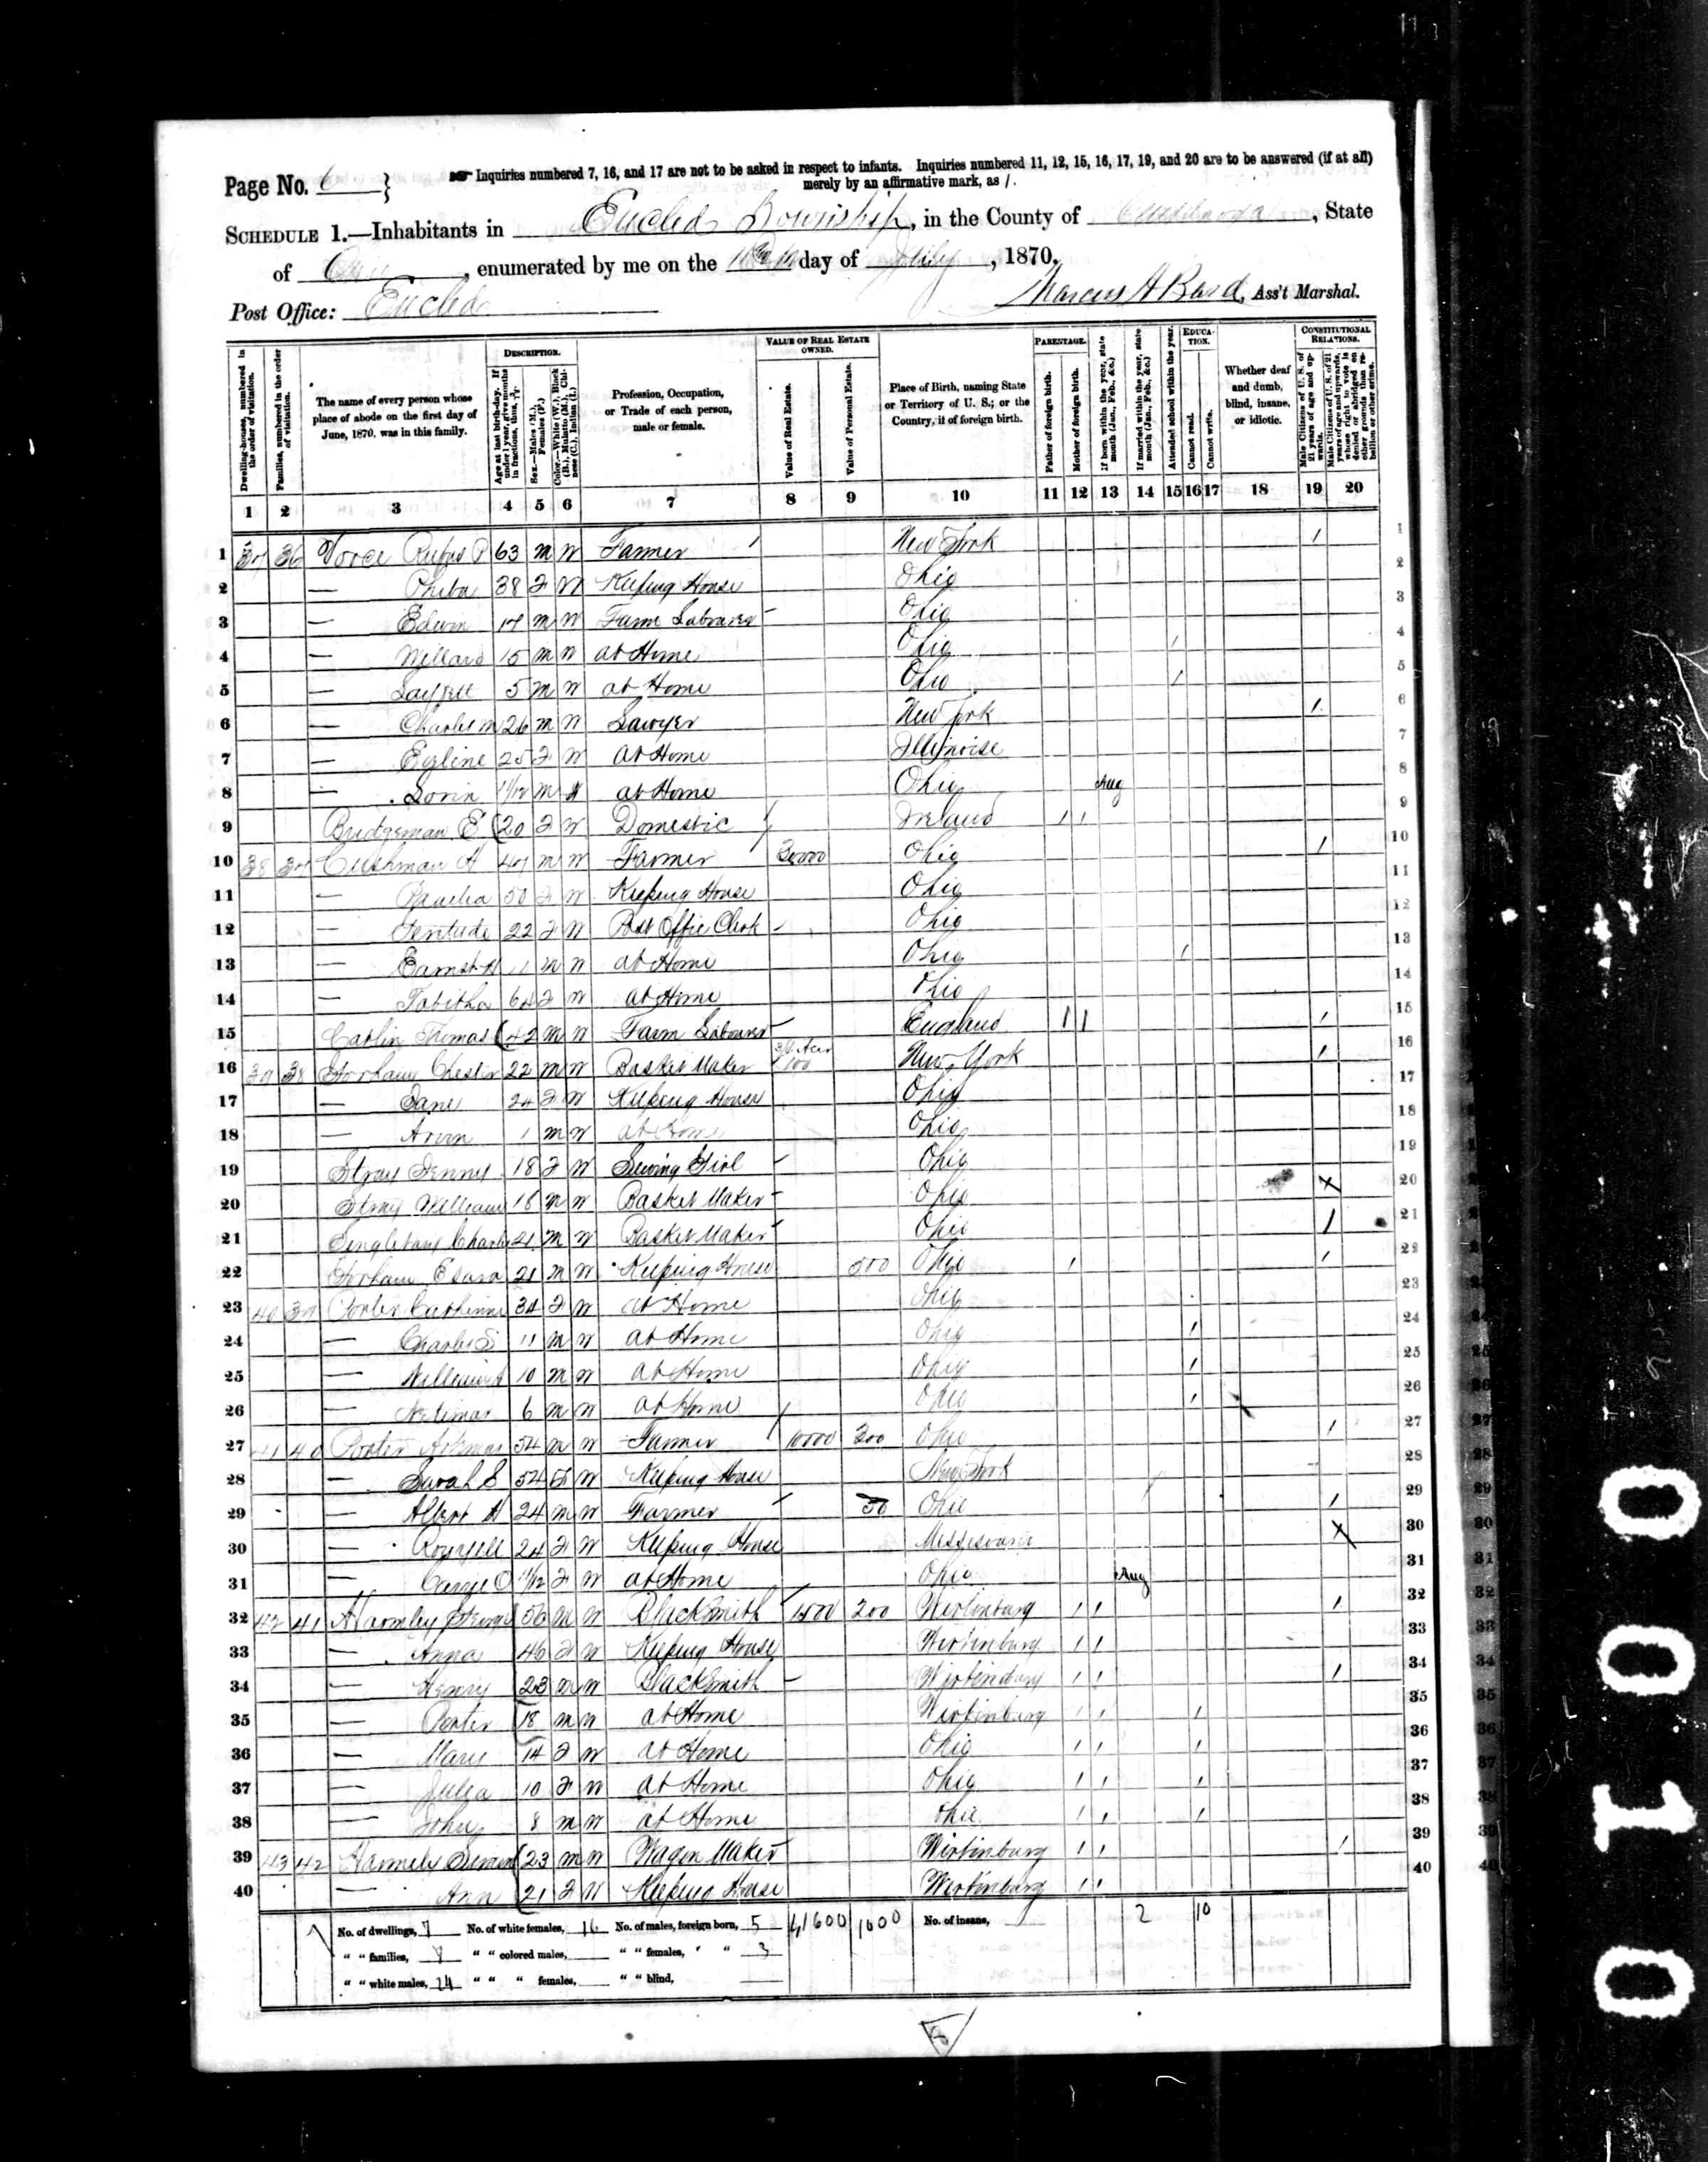 Page No. 6 }
Inquiries numbered 7, 16, and 17 are not to be asked in respect to infants. Inquiries numbered 11, 12, 15, 16, 17, 19, and 20 are to be answered (if at all)
merely by an affirmative mark, as /.
SCHEDULE 1.—Inhabitants in Euclid Township, in the County of Cuyahoga, State
of Ohio, enumerated by me on the day of July, 1870.
Post Office: Euclid
Marcus A Bard, Ass't Marshal.
DESCRIPTION.
VALUE OF REAL ESTATE OWNED.
PARENTAGE.
EDUCATION.
CONSTITUTIONAL RELATIONS.
Dwelling-houses, numbered in the order of visitation.
Families, numbered in the order of visitation.
The name of every person whose place of abode on the first day of June, 1870, was in this family.
Age at last birth-day. If under 1 year, give months in fractions, thus, 3/12
Sex.—Males (M.), Females (F.)
Color.—White (W.), Black (B.), Mulatto (M.), Chinese (C.), Indian (I.)
Profession, Occupation, or Trade of each person, male or female.
Value of Real Estate.
Value of Personal Estate.
Place of Birth, naming State or Territory of U. S.; or the Country, if of foreign birth.
Father of foreign birth.
Mother of foreign birth.
If born within the year, state month (Jan., Feb., &c.)
If married within the year, state month (Jan., Feb., &c.)
Attended school within the year.
Cannot read.
Cannot write.
Whether deaf and dumb, blind, insane, or idiotic.
Male Citizens of U. S. of 21 years of age and upwards.
Male Citizens of U. S. of 21 years of age and upwards, whose right to vote is denied or abridged on other grounds than rebellion or other crime.
1 2 3 4 5 6 7 8 9 10 11 12 13 14 15 16 17 18 19 20
1 37 36 Vorce Rufus P 63 M W Farmer New York / 1
2 — 38 F W Keeping House Ohio 2
3 — Edwin 17 M W Farm Laborer Ohio 3
4 — Willard 15 M W at Home Ohio / 4
5 — 5 M W at Home Ohio / 5
6 — Charles M 26 M W Lawyer New York / 6
7 — 25 F W at Home Illinoise 7
8 — Lorin 11/12 M W at Home Ohio Aug 8
9 Bridgeman E 20 F W Domestic Ireland / / 9
10 38 37 Cushman A 47 M W Farmer 30000 Ohio / 10
11 — 50 F W Keeping House Ohio 11
12 — Gertrude 22 F W Post Office Clerk Ohio 12
13 — Earnst H 11 M W at Home Ohio / 13
14 — Tabitha 64 F W at Home Ohio 14
15 Catlin Thomas 42 M W Farm Laborer England / / / 15
16 39 38 Gorham Chester 22 M W Basket Maker 100 New York / 16
17 — Jane 24 F W Keeping House Ohio 17
18 — Arvin 1 M W at Home Ohio 18
19 Stray Jenny 18 F W Sewing Girl Ohio 19
20 Stray William 18 M W Basket Maker Ohio X 20
21 Charles 21 M W Basket Maker Ohio / 21
22 Gorham 21 M W Keeping House 500 Ohio / / 22
23 40 39 Porter Catherine 34 F W at Home Ohio 23
24 — Charles S 11 M W at Home Ohio / 24
25 — William A 10 M W at Home Ohio / 25
26 — 6 M W at Home Ohio / 26
27 41 40 Porter 54 M W Farmer 10000 300 Ohio / 27
28 — Sarah S 54 F W Keeping House New York 28
29 — Albert H 24 M W Farmer 50 Ohio / 29
30 — 24 F W Keeping House X 30
31 — Carrie O 11/12 F W at Home Ohio Aug 31
32 42 41 George 56 M W Blacksmith 1500 200 Wirtinburg / / / 32
33 — Anna 46 F W Keeping House Wirtinburg / / 33
34 — Henry 23 M W Blacksmith Wirtinburg / / / 34
35 — Porter 18 M W at Home Wirtinburg / / / 35
36 — Mary 14 F W at Home Ohio / / / 36
37 — Julia 10 F W at Home Ohio / / / 37
38 — John 8 M W at Home Ohio / / / 38
39 43 42 23 M W Wagon Maker Wirtinburg / / / 39
40 — Ann 21 F W Keeping House Wirtinburg / / 40
No. of dwellings, 7 No. of white females, 16 No. of males, foreign born, 5 41600 1000 No. of insane, 2 10
" " families, " " colored males, " " females, " " 3
" " white males, 24 " " " females, " " blind,
00100